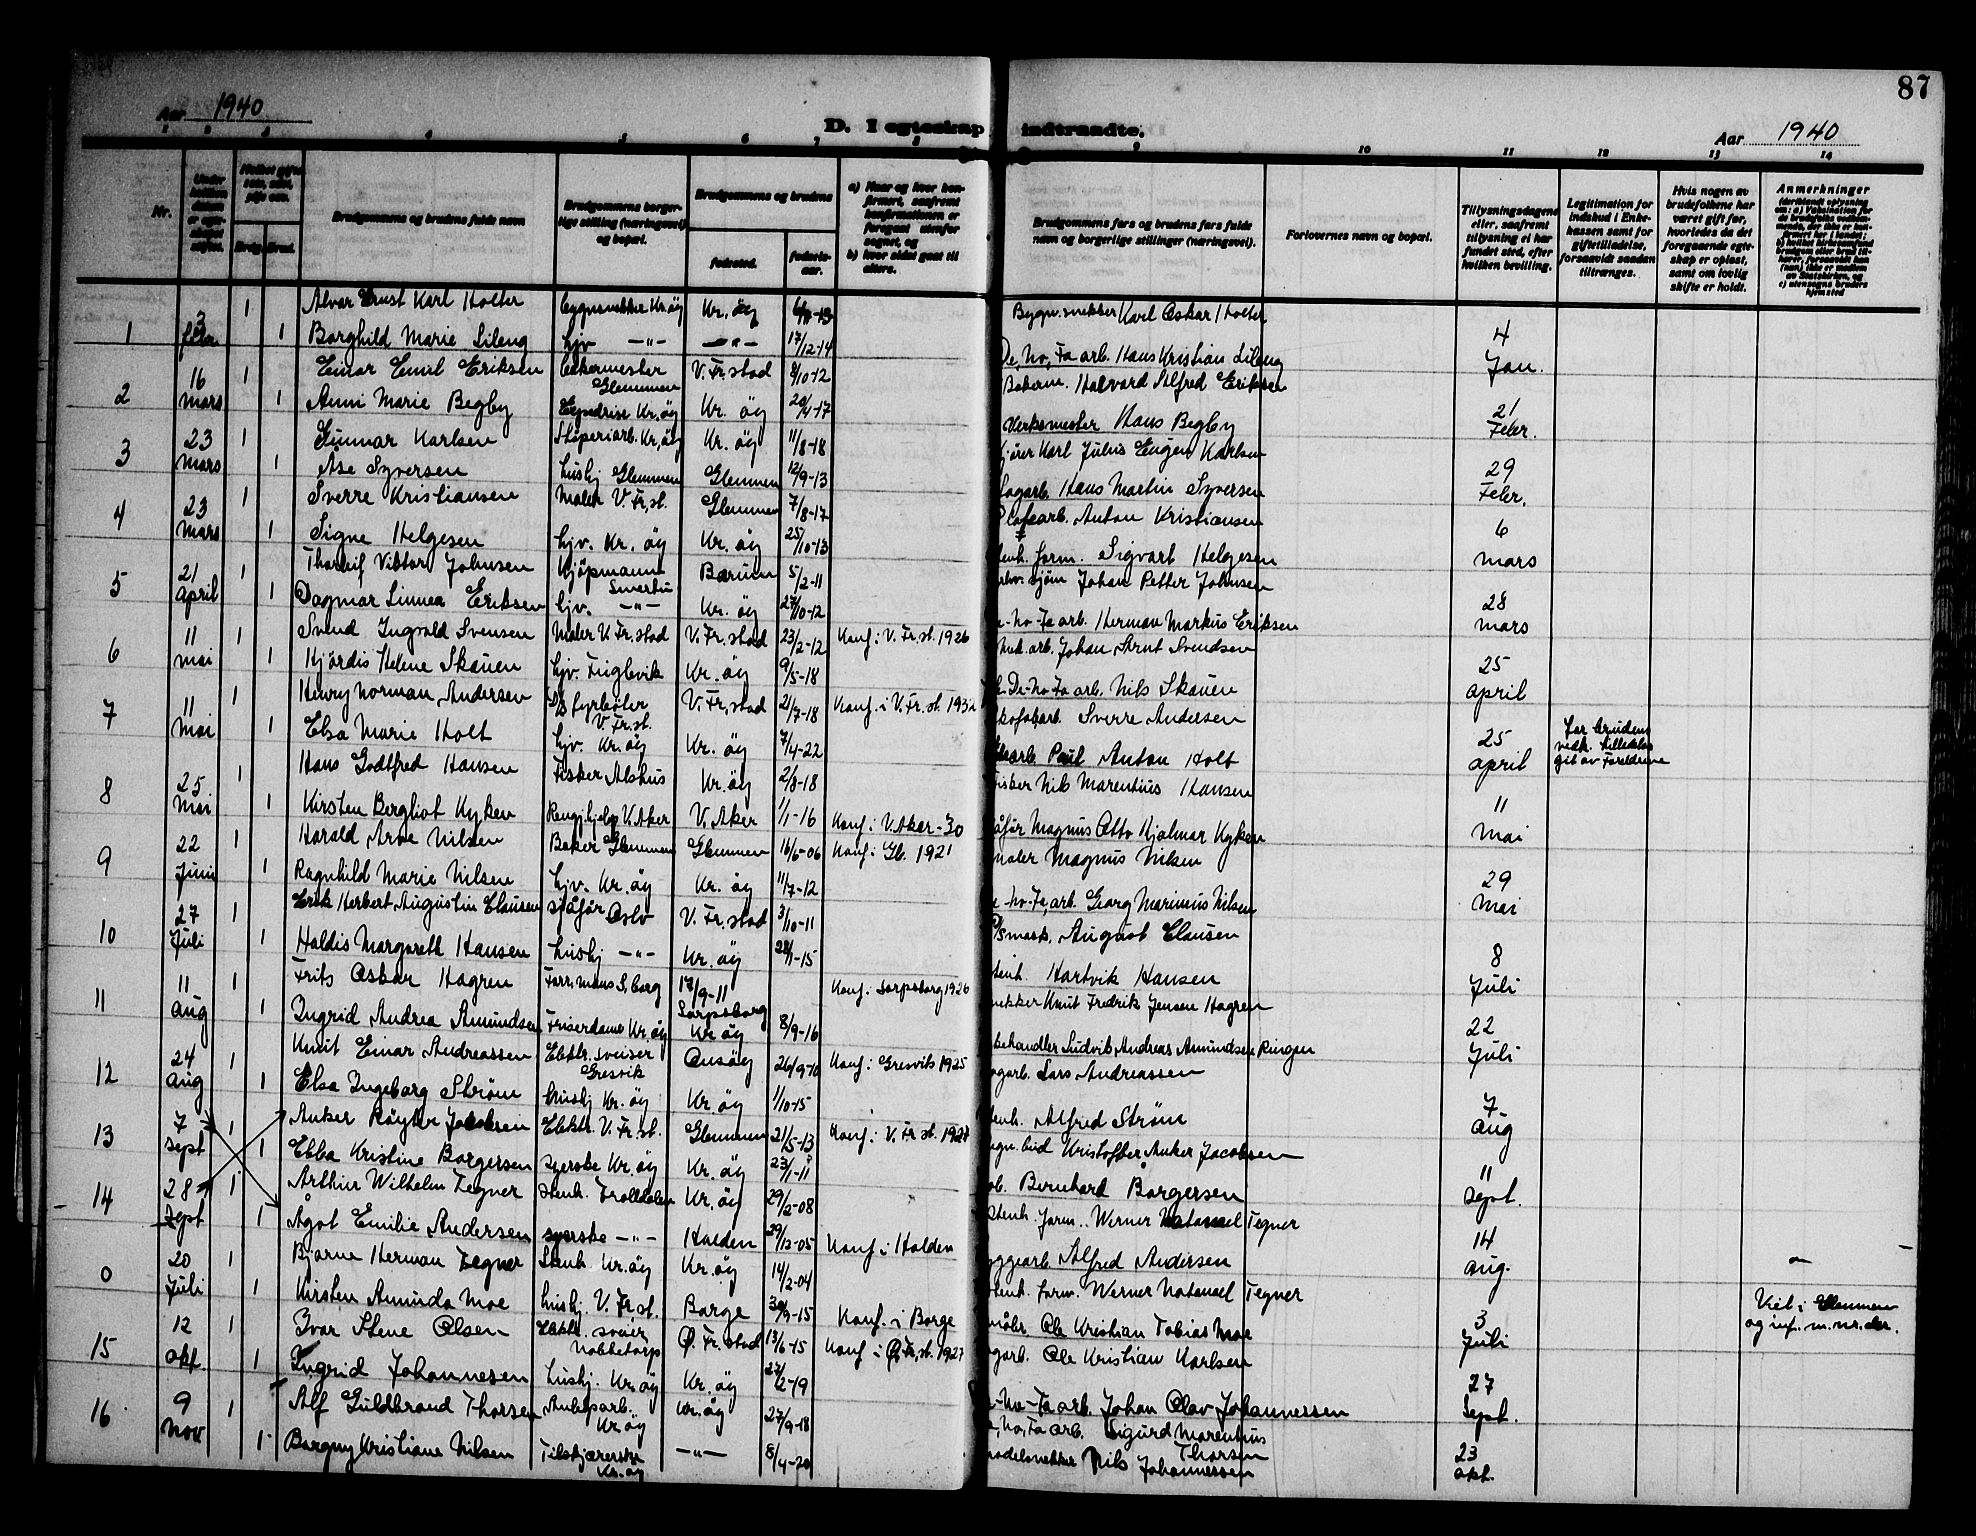 87
Aar 1940
D. I egteskap indtraadte.
Aar 1940
1 2 3 4 5 6 7 8 9 10 11 12 13 14
Nr.
Brudg. Brud.
Brudgommens og brudens fulde navn
Brudgommens borgerlige stilling (næringsvei) og bopæl.
Brudgommens og brudens
fødested.
fødselsaar.
a) Naar og hvor konfirmert, saafremt konfirmationen er foregaaet utenfor sognet, og
b) hvor sidst gaat til alters.
Brudgommens fars og brudens fars fulde navn og borgerlige stillinger (næringsvei).
Forlovernes navn og bopæl.
Tillysningsdagene eller, saafremt tillysning ei har fundet sted, efter hvilken bevilling.
Legitimation for indskud i Enkekassen samt for giftetilladelse, forsaavidt saadan tiltrænges.
Hvis nogen av brudefolkene har været gift før, hvorledes da det foregaaende egteskap er opløst, samt om lovlig skifte er holdt.
Anmerkninger
1 3 febr 1 Alvar Ernst Karl Holter bygnsnekker Kr.øy Kr. øy 6/11-13 Bygn.snekker Karl Oskar Holter 4 Jan.
1 Borghild Marie Lileng hjv —"— —"— 17/12-14 De,No,Fa arb. Hans Kristian Lileng
2 16 mars 1 Einar Emil Eriksen bakermester Glemmen V. Fr.stad 8/10-12 Bakerm. Halvard Alfred Eriksen 21 Febr.
1 Anni Marie Begby Expedrise Kr.øy Kr. øy 20/4-17 Verksmester Hans Begby
3 23 mars 1 Gunnar Karlsen Støperiarb. Kr.øy Kr. øy 11/8-18 kjører Karl Julius Eugen Karlsen 29 Febr.
1 Åse Syversen hushj Glemmen Glemmen 12/9-13 sagarb. Hans Martin Syversen
4 23 mars 1 Sverre Kristiansen maler V. Fr.st. Glemmen 7/8-17 Anton Kristiansen 6 mars
1 Signe Helgesen hjv. Kr. øy Kr. øy 25/10-13 stenh. form. Sigvart Helgesen
5 21 april 1 Thorleif Viktor Johnsen Kjøpmann Smertu Bærum 5/2-11 Johan Petter Johnsen 28 mars
1 Dagmar Linnea Eriksen hjv. —"— Kr. øy 27/10-12 De-No-Fa arb. Herman Markus Eriksen
6 11 mai 1 Svend Ingvald Svensen Maler V. Fr.stad V. Fr.stad 23/2-12 Konf. i V. Fr.st. 1926 mek. arb. Johan Arnt Svendsen 25 april
1 Hjørdis Helene Skauen hjv. Fuglevik Kr. øy 9/5-18 De-No-Fa arb. Nils Skauen
7 11 mai 1 Henry Norman Andersen D/S fyrbøter V. Fr.st. V. Fr.stad 2/7-18 Konf. i V. Fr. st. 1932 skofabarb. Sverre Andersen 25 april
1 Elsa Marie Holt hjv. Kr. øy Kr. øy 7/4-22 Paul Anton Holt For brudens vedk. tilladelse git av Foreldrene
8 25 Mai 1 Hans Godtfred Hansen Fisker Alshus Kr. øy 2/8-18 Fisker Nils Marentius Hansen 11 Mai
1 Kirsten Bergliot Kyken Rengj.hjelp V. Aker V. Aker 1/1-16 Konf. i V. Aker-30 sjåfør Magnus Otto Hjalmar Kyken
9 22 Juni 1 Harald Arne Nilsen Baker Glemmen Glemmen 16/6-06 Konf. i Gl. 1921 maler Magnus Nilsen 29 Mai
1 Ragnhild Marie Nilsen hjv. Kr. øy Kr. øy 11/7-12 De-No-Fa, arb. Georg Marinius Nilsen
10 27 Juli 1 Erik Herbert Augustin Clausen sjåfør Oslo V. Fr. stad 3/10-11 D/S mask. August Clausen 8 Juli
1 Haldis Margareth Hansen hushj —"— Kr. øy 28/1-15 stenh. Hartvik Hansen
11 11 aug 1 Frits Oskar Hagren Forr.mann S.borg 17/9-11 Sarpsborg Konf. i Sarpsborg 1926 snekker Knut Fredrik Jensen Hagren 22 Juli
1 Ingrid Andrea Amundsen Friserdame Kr. øy Kr øy 8/9-16 behandler Ludvik Andreas Amundsen Ringen
12 24 aug 1 Knut Einar Andreassen Elektr. sveiser Gresvik Onsøy 26/9-10 Konf. i Gresvik 1925 sagarb. Lars Andreassen 7 aug
1 Elsa Ingeborg Strøm hushj Kr. øy Kr. øy 1/10-15 stenh. Alfred Strøm
13 7 sept 1 Anker Røyter Jacobsen Elektr. V. Fr. st. Glemmen 21/5-13 Konf. i V. Fr st. 1927 bud Kristoffer Anker Jacobsen 11 sept.
1 Ebba Kristine Borgersen syerske Kr. øy Kr. øy 23/1-11 Bernhard Borgersen
14 28 sept 1 Arthur Wilhelm Tegner stenh. Trolldalen Kr. øy 29/2-08 Stenh. form. Werner Natanael Tegner 14 aug.
1 Ågot Emilie Andersen syerske —"— Halden 29/12-05 Konf. i Halden byggearb. Alfred Andersen
0 20 Juli 1 Bjarne Herman Tegner Stenh. Kr. øy Kr. øy 14/2-04 stenh. form. Werner Natanael Tegner 3 Juli
1 Kirsten Amunda Moe hushj. V. Fr. st. Borge 30/9-15 Konf. i Borge Ole Kristian Tobias Moe Viet i Glemmen og inf. m. nr. der.
15 12 okt. 1 Ivar Stene Olsen Elektr. sveis. Nabbetorp Ø. Fr. stad 13/6-15 Konf i Ø. Fr. st. 1927 Ole Kristian Karlsen 27 Sept.
1 Ingrid Johannesen hushj. Kr. øy Kr. øy 27/2-19 De-No-Fa arb. Johan Olav Johannessen
16 9 nov 1 Alf Guldbrand Thorsen Anlegsarb. Kr øy Kr. øy 27/9-18 De, No, Fa arb. Sigurd Marentius Thorsen 23 okt.
1 Borgny Kristiane Nilsen Tilskjærerske Kr. øy —"— 8/4-20 modelsnekker Nils Johannessen